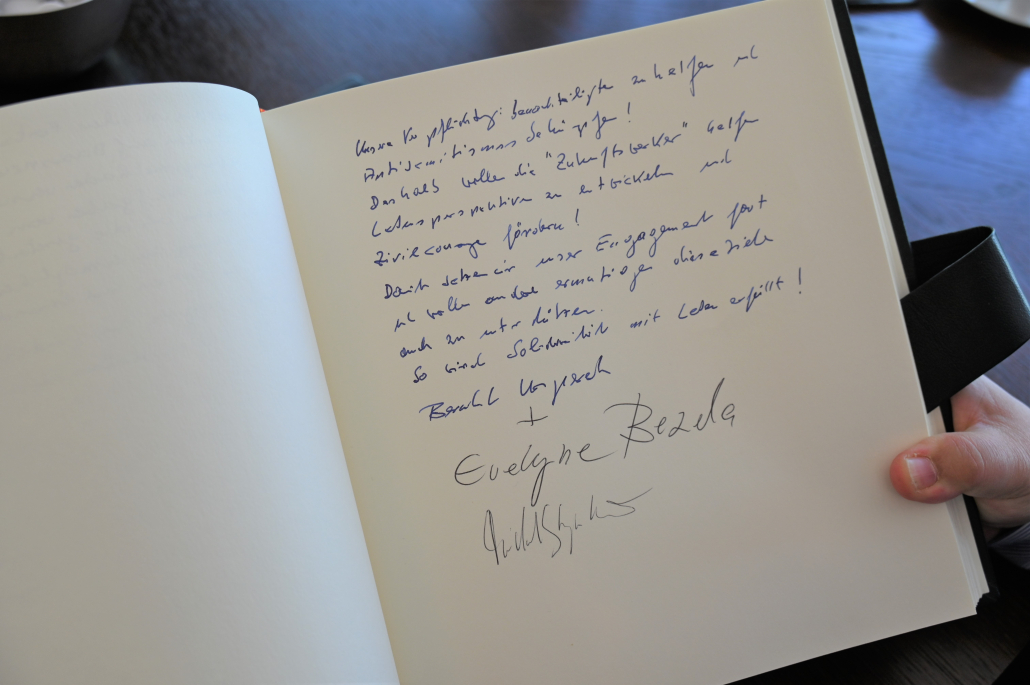 Unsere Verpflichtung: Benachteiligte zu helfen und
Antisemitismus bekämpfen!
Deshalb wollen die "Zukunftswerker" helfen
Lebensperspektiven zu entwickeln und
Zivilcourage fördern!
Damit setzen wir unser Engagement fort
und wollen andere ermutigen diese Ziele
auch zu unterstützen.
So wird Solidarität mit Leben erfüllt!
+
Evelyne Bezela